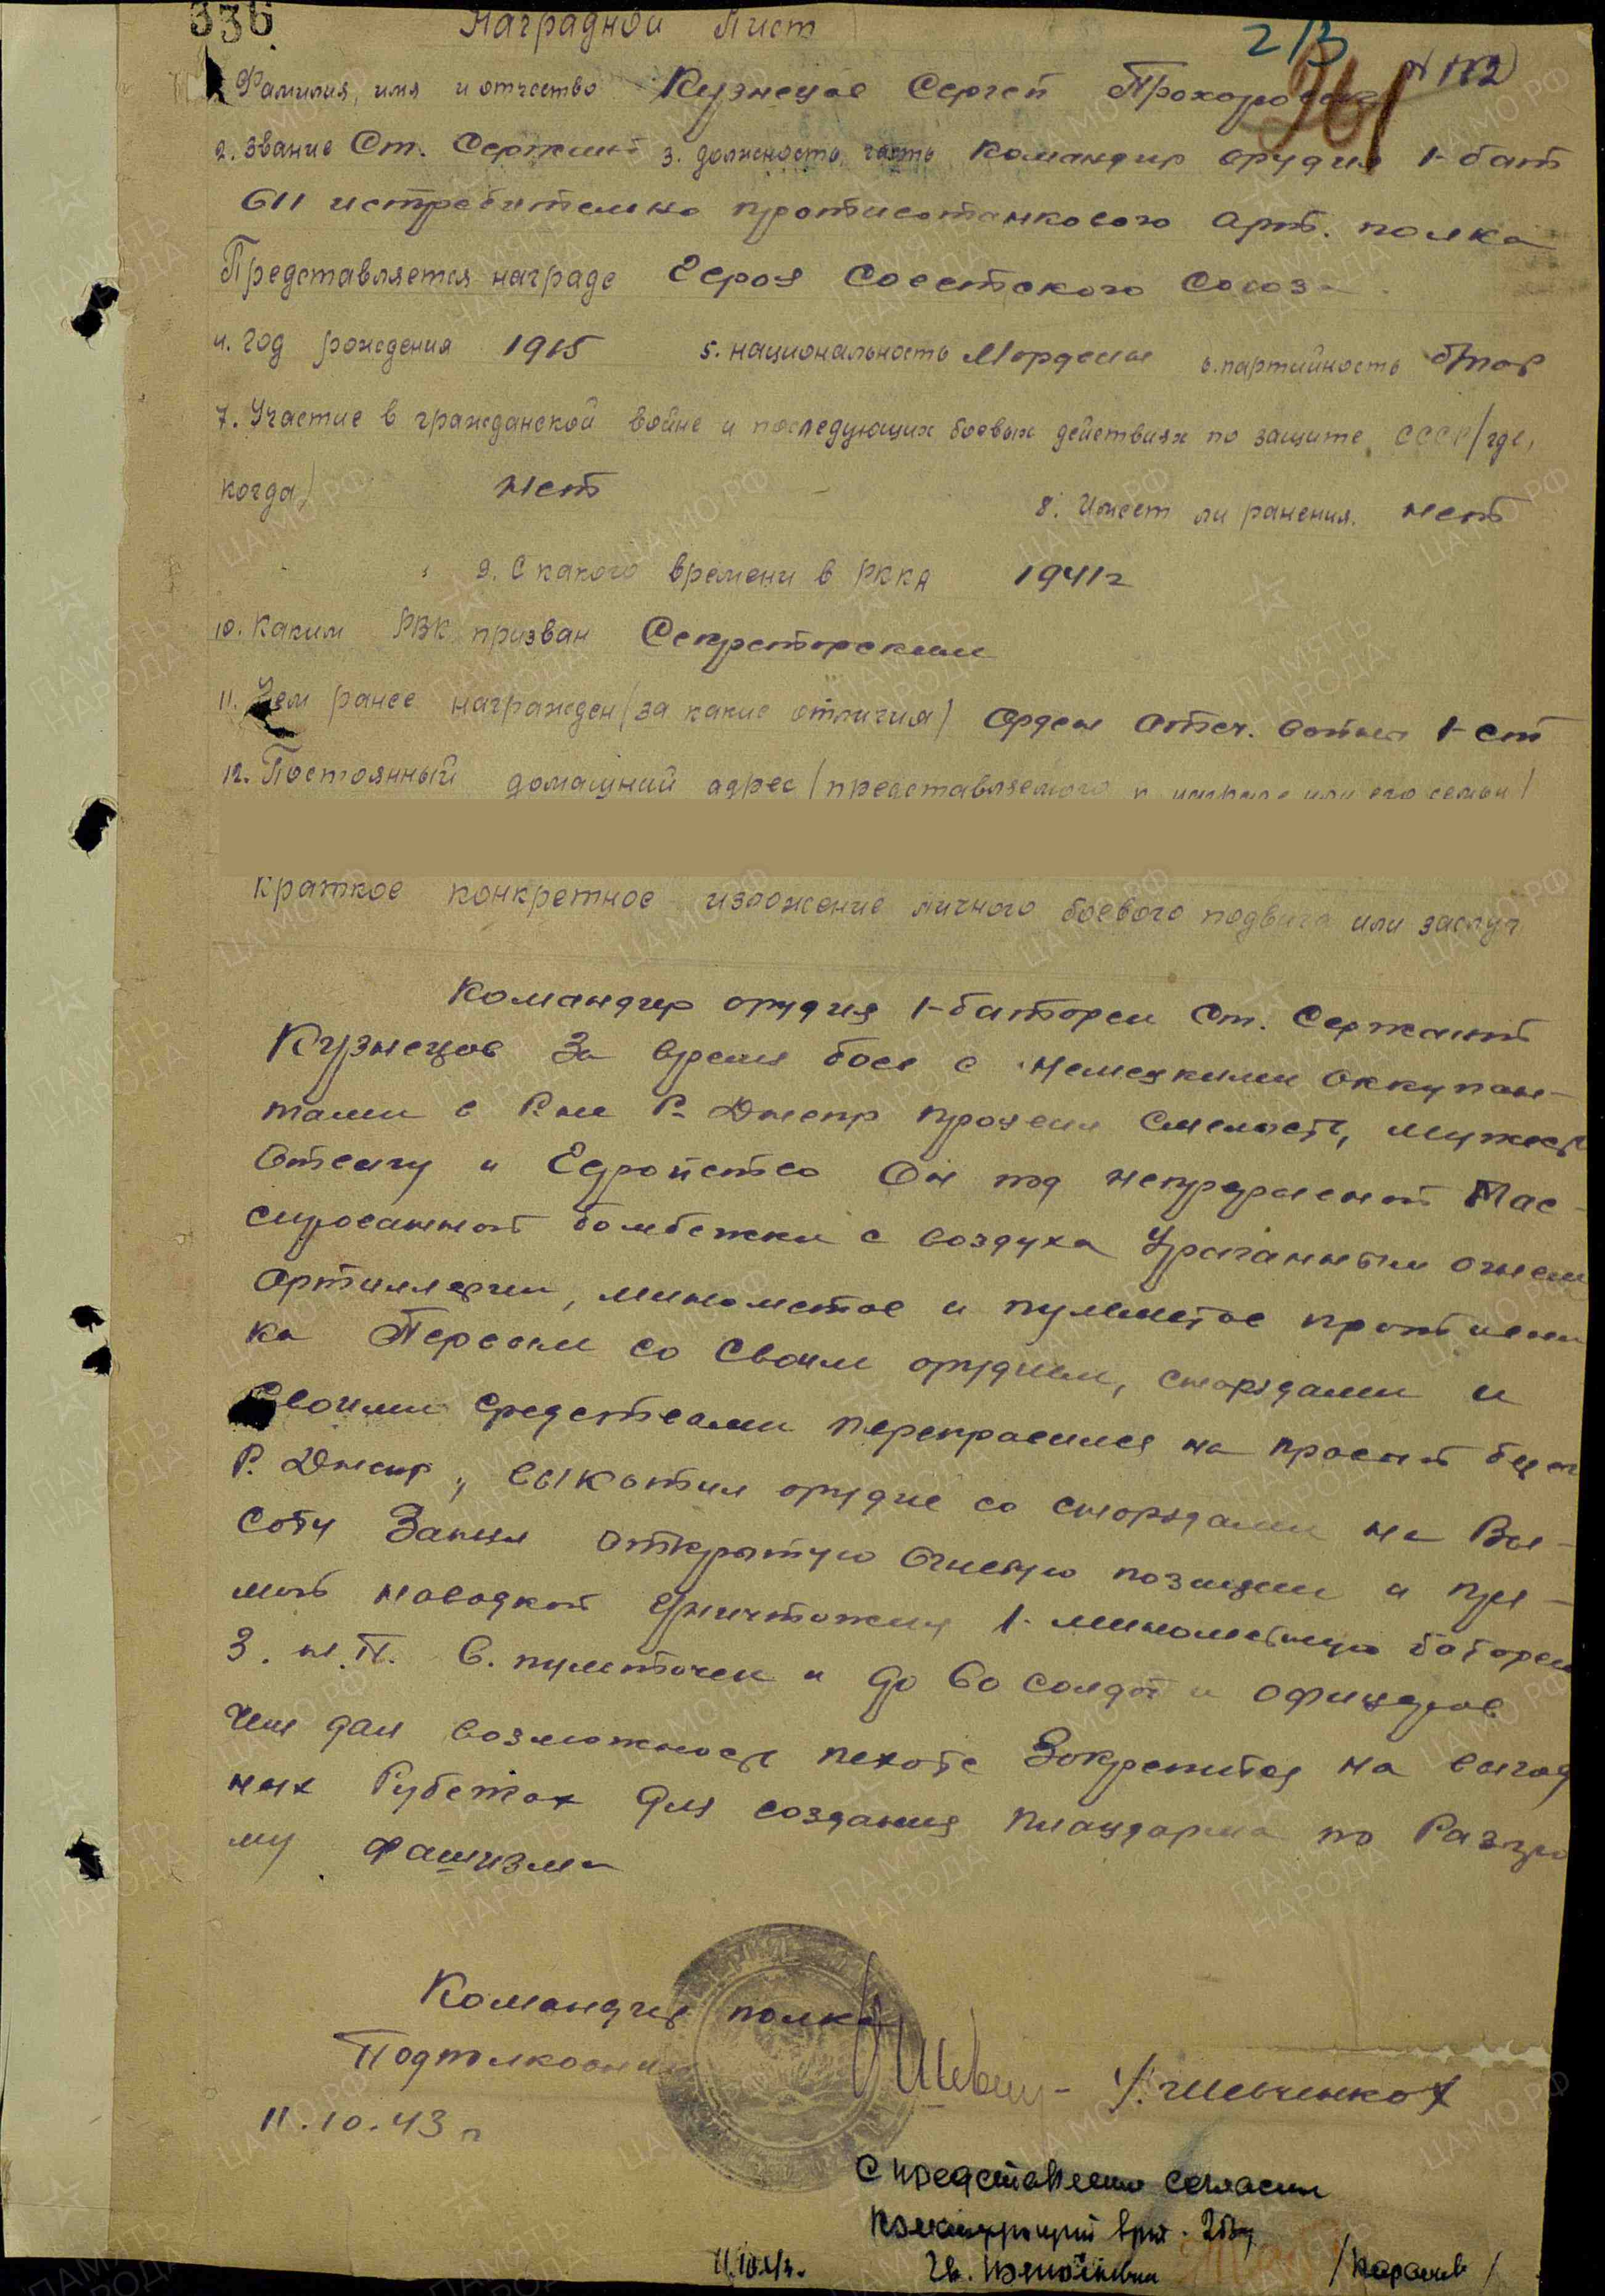 336
Наградной Лист
213
961
N 182
Фамилия, имя и отчество Кузнецов Сергей Прохорович
2. Звание Ст. Сержант 3. должность, часть Командир орудия 1-бат
611 истребительно противотанкового Арт. полка
Представляется награде Героя Советского Союза
4. Год рождения 1915 5. национальность Мордвин 6. партийность
7. Участие в гражданской войне и последующих боевых действиях по защите СССР /где,
когда/ Нет 8. Имеет ли ранения. Нет
9. С какого времени в РККА 1941г
10. Каким РВК призван
11. Чем ранее награжден /за какие отличия/ Орден Отеч. войны 1-ст
12. Постоянный домашний адрес /представляемого к награде или его семьи/
Краткое конкретное изложение личного боевого подвига или заслуг
Командир орудия 1-батореи Ст. Сержант
Кузнецов За время боев с немецкими Оккупан-
тами в Р-не Р. Днепр проявил Смелость, мужес
Отвагу и Он под непрерывной Мас-
сированной бомбежки с воздуха Ураганным огнем
Артиллерии, минометов и пулеметов противни
ка Первым со Своим орудием, снарядами и
Своими средствами переправился на правый бер
Р. Днепр, выкатил орудие со снарядами на Вы-
соту Занял открытую Огневую позицию и пря-
мой наводкой Уничтожил 1- минометную баторею
3. Н.П. 6. пулеточек и до 60 солдат и офицеров
Чем дал возможность пехоте Закрепится на выгод
ных Рубежах Для создания плацдарма по Разгро
му фашизма
Командир полка
Подполковник
11.10.43 г
С представлением согласен
Командующий арт.
11.10.43г.
Гв. Полковник